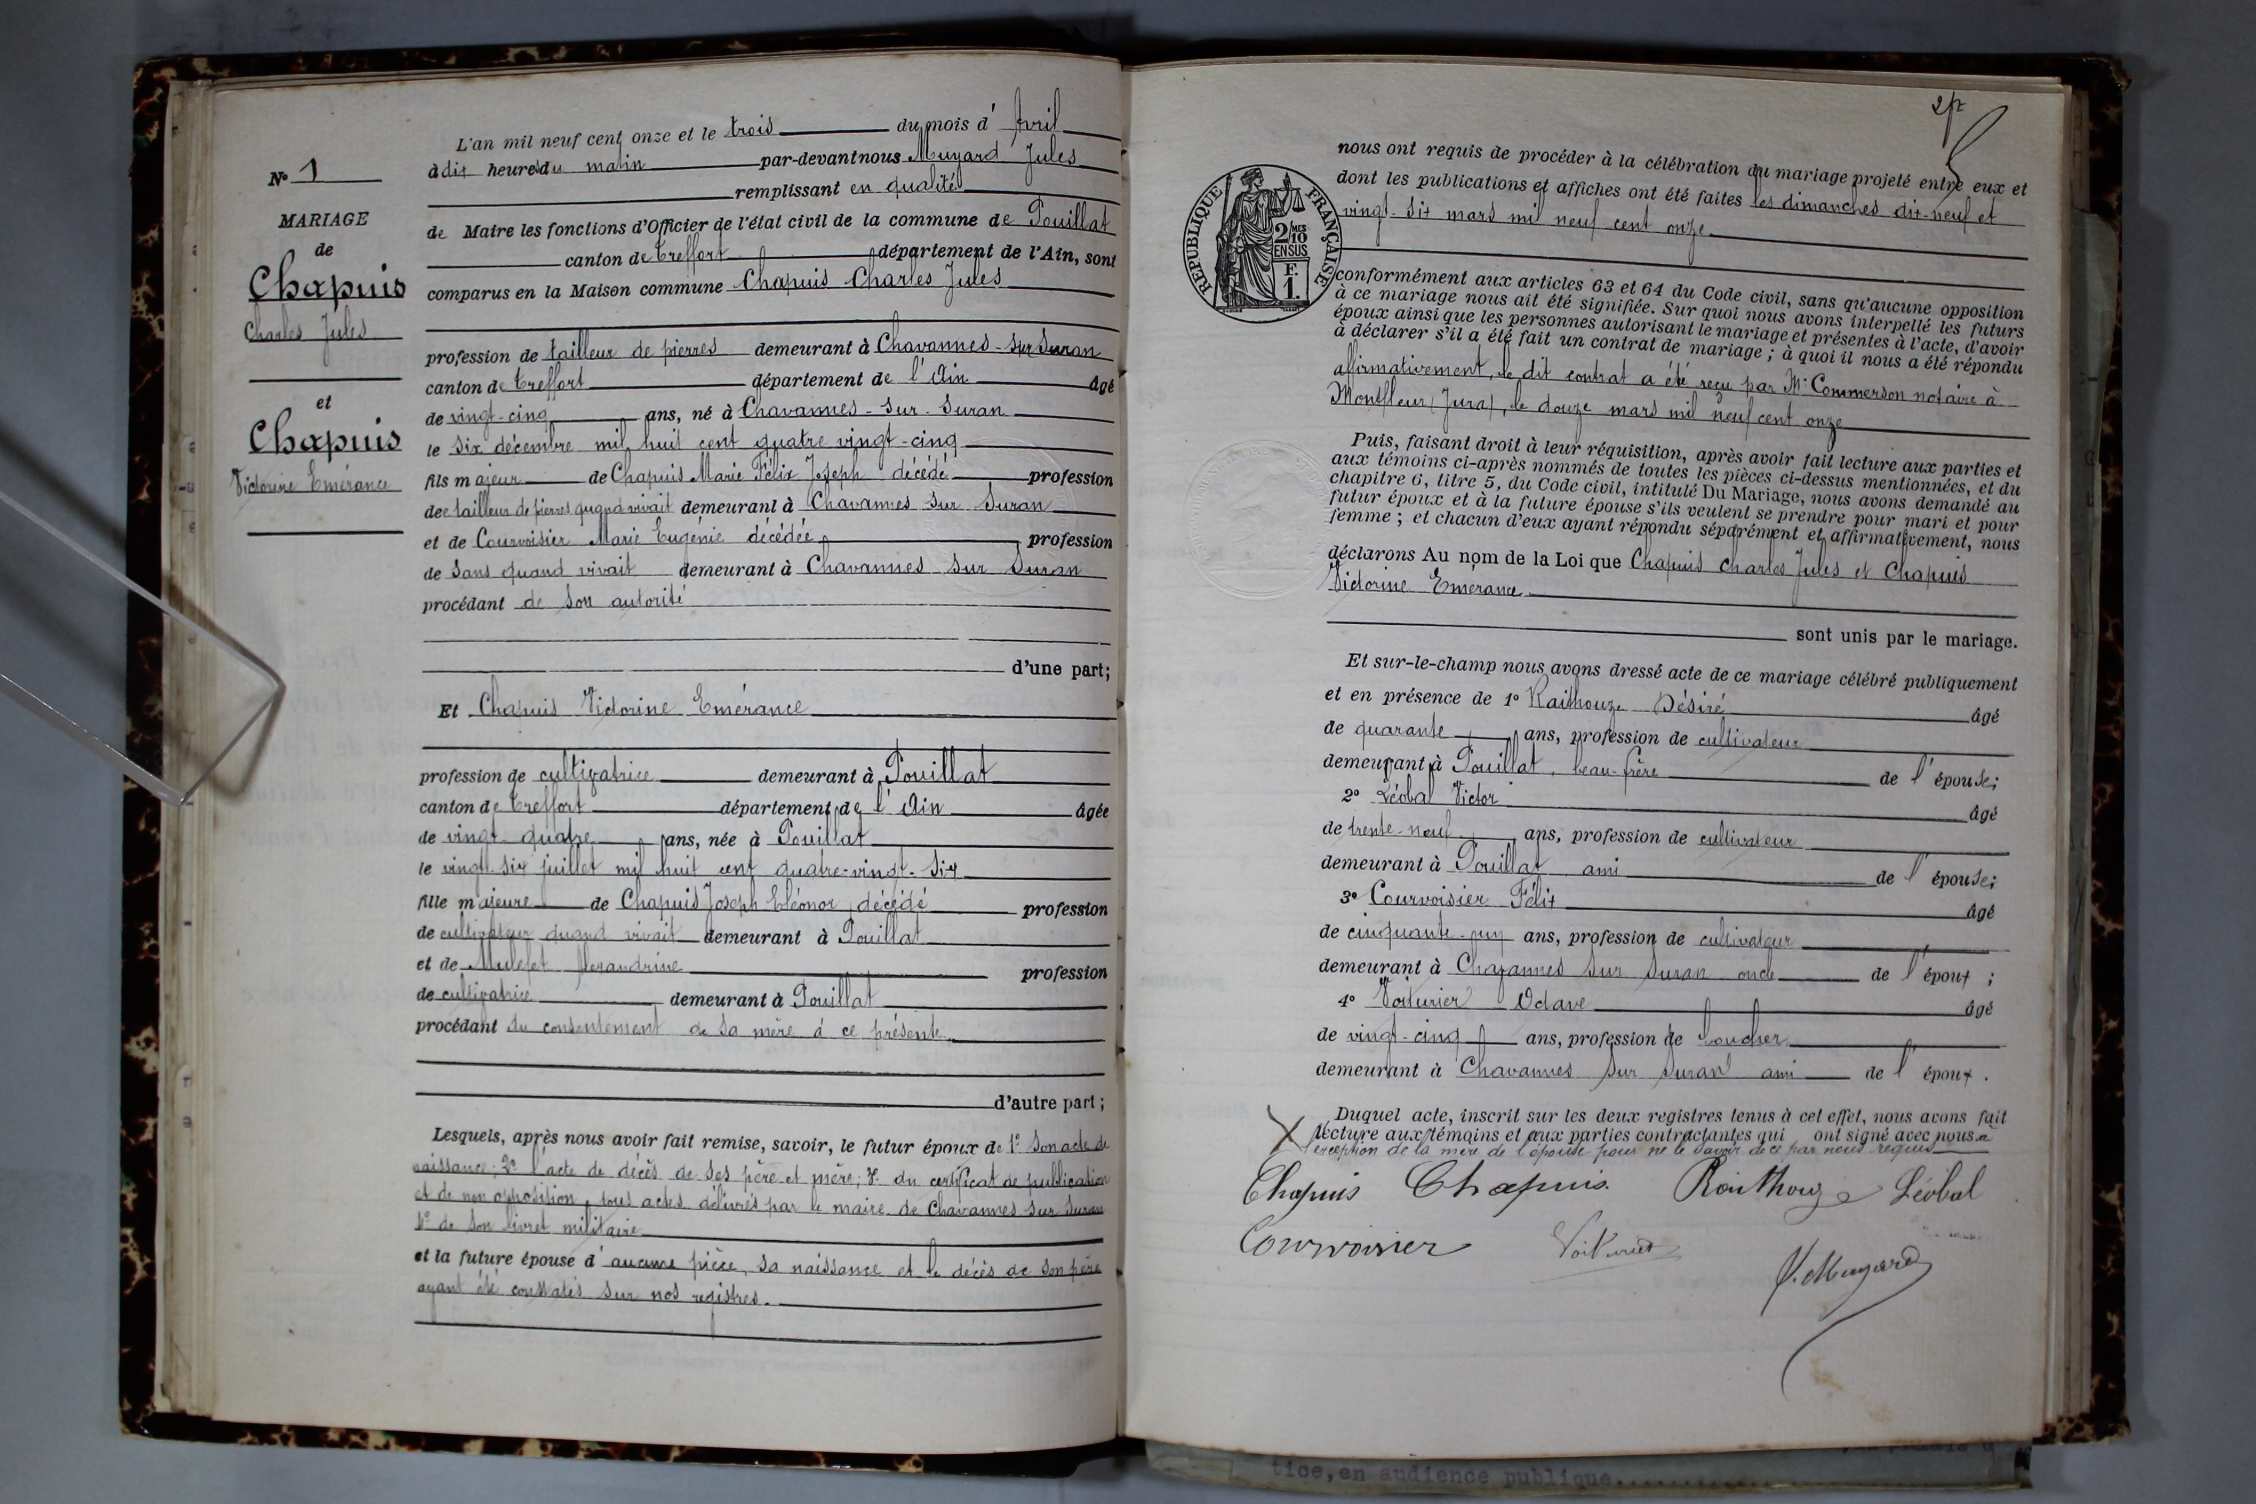 L'an mil neuf cent onze et le trois du mois d'Avril
à dix heures du matin par-devant nous Muyard Jules
remplissant en qualité
de Maire les fonctions d'Officier de l'état civil de la commune de Pouillat
canton de Treffort département de l'Ain, sont
comparus en la Maison commune Chapuis Charles Jules
profession de tailleur de pierres demeurant à Chavannes-sur Suran
canton de Treffort département de l'Ain âgé
de vingt-cinq ans, né à Chavannes-sur-Suran
le six décembre mil huit cent quatre vingt-cinq
fils majeur de Chapuis Marie Félix Joseph décédé profession
de tailleur de pierres quand vivait demeurant à Chavannes sur Suran
et de Courvoisier Marie Eugénie décédée, profession
de sans quand vivait demeurant à Chavannes sur Suran
procédant de son autorité
d'une part;
Et Chapuis Victorine Emérance
profession de cultivatrice demeurant à Pouillat
canton de Treffort département de l'Ain âgée
de vingt-quatre ans, née à Pouillat
le vingt-six juillet mil huit cent quatre-vingt-six
fille majeure de Chapuis Joseph Eléonor, décédé profession
de cultivateur quand vivait demeurant à Pouillat
et de profession
de cultivatrice demeurant à Pouillat
procédant du consentement de sa mère à ce présente
d'autre part;
Lesquels, après nous avoir fait remise, savoir, le futur époux de 1º Son acte de
naissance; 2º l'acte de décès de ses père et mère; 3º du certificat de publication
et de non opposition, tous actes délivrés par le maire de Chavannes sur Suran
4º de son livret militaire
et la future épouse d'aucune pièce, sa naissance et le décès de son père
ayant été constatés sur nos registres.
Nº 1
MARIAGE
de
Chapuis
Charles Jules
et
Chapuis
Victorine Emérance
REPUBLIQUE FRANÇAISE
2/MES
10
EN SUS
F.
1.
nous ont requis de procéder à la célébration du mariage projeté entre eux et
dont les publications et affiches ont été faites les dimanches dix-neuf et
vingt-six mars mil neuf cent onze
conformément aux articles 63 et 64 du Code civil, sans qu'aucune opposition
à ce mariage nous ait été signifiée. Sur quoi nous avons interpellé les futurs
époux ainsi que les personnes autorisant le mariage et présentes à l'acte, d'avoir
à déclarer s'il a été fait un contrat de mariage; à quoi il nous a été répondu
affirmativement, le dit contrat a été reçu par Mº Commerson notaire à
Montfleur (Jura), le douze mars mil neuf cent onze
Puis, faisant droit à leur réquisition, après avoir fait lecture aux parties et
aux témoins ci-après nommés de toutes les pièces ci-dessus mentionnées, et du
chapitre 6, litre 5, du Code civil, intitulé Du Mariage, nous avons demandé au
futur époux et à la future épouse s'ils veulent se prendre pour mari et pour
femme; et chacun d'eux ayant répondu séparément et affirmativement, nous
déclarons Au nom de la Loi que Chapuis Charles Jules et Chapuis
Victorine Emérance
sont unis par le mariage.
Et sur-le-champ nous avons dressé acte de ce mariage célébré publiquement
et en présence de 1º Désiré âgé
de quarante ans, profession de cultivateur
demeurant à Pouillat, beau-frère de l'épouse;
2º Léobal Victor âgé
de trente-neuf ans, profession de cultivateur
demeurant à Pouillat ami de l'épouse;
3º Courvoisier Félix âgé
de cinquante-un ans, profession de cultivateur
demeurant à Chavannes sur Suran oncle de l'époux;
4º Voiturier Octave âgé
de vingt-cinq ans, profession de boucher
demeurant à Chavannes sur Suran ami de l'époux.
Duquel acte, inscrit sur les deux registres tenus à cet effet, nous avons fait
lecture aux témoins et aux parties contractantes qui ont signé avec nous à
l'exception de la mère de l'épouse pour ne le savoir de ce par nous requis
Chapuis Chapuis. Léobal
Courvoisier Voiturier J. Muyard
tice, en audience publique